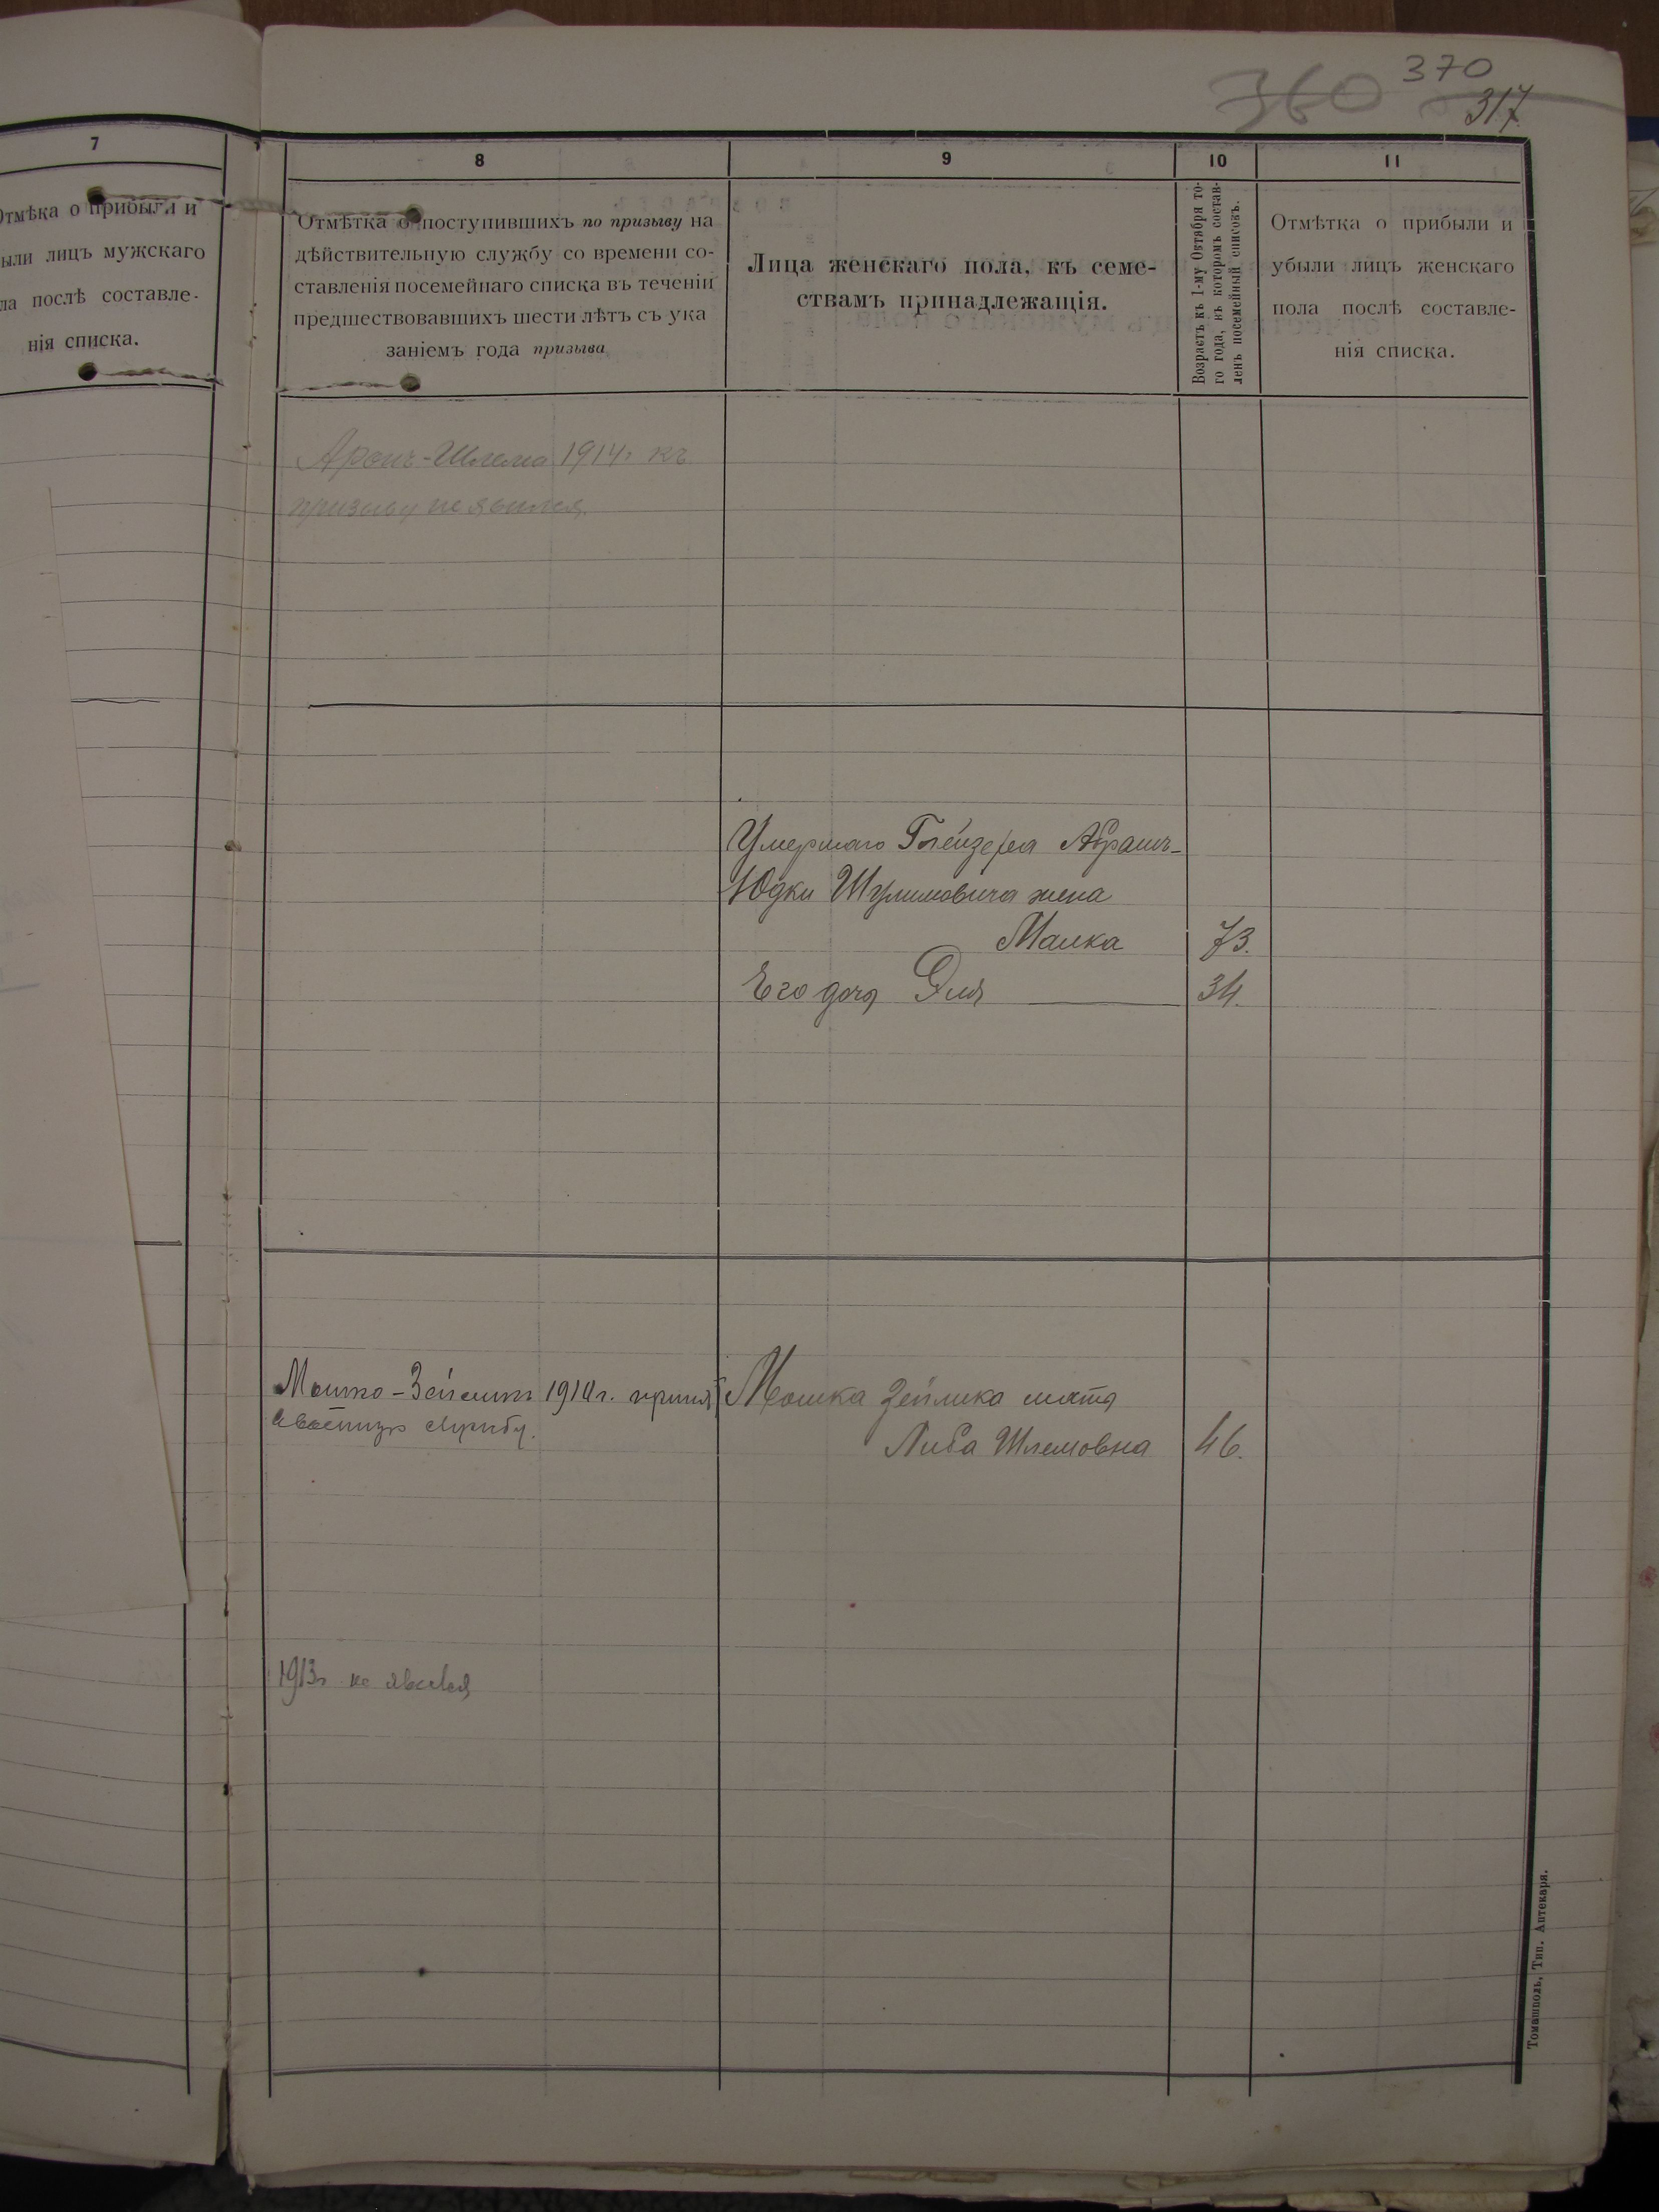 360 370
317
7
Отмѣка о прибыли и
были лицъ мужскаго
ла послѣ составле-
нія списка.
8
Отмѣтка о поступившихъ по призыву на
дѣйствительную службу со времени со-
ставленія посемейнаго списка въ теченіи
предшествовавшихъ шести лѣтъ съ ука
заніемъ года призыва
9
Лица женскаго пола, къ семе-
ствамъ принадлежащія.
10
Возрастъ къ 1-му Октября то-
го года, въ которомъ состав-
ленъ посемейный списокъ.
11
Отмѣтка о прибыли и
убыли лицъ женскаго
пола послѣ составле-
нія списка.
Аронъ-Шлема 1914г къ
призыву не явился
Умершаго Глейзера Абрамъ-
Юдки Шулимовича жена
Малка 73.
Его доч Эля 34.
Мошко-Зейликъ 1910г. принят
службу.
Мошка Зейлика мать
Либа Шлемовна 46.
1913г не явился
Томашполь, Тип. Аптекаря.